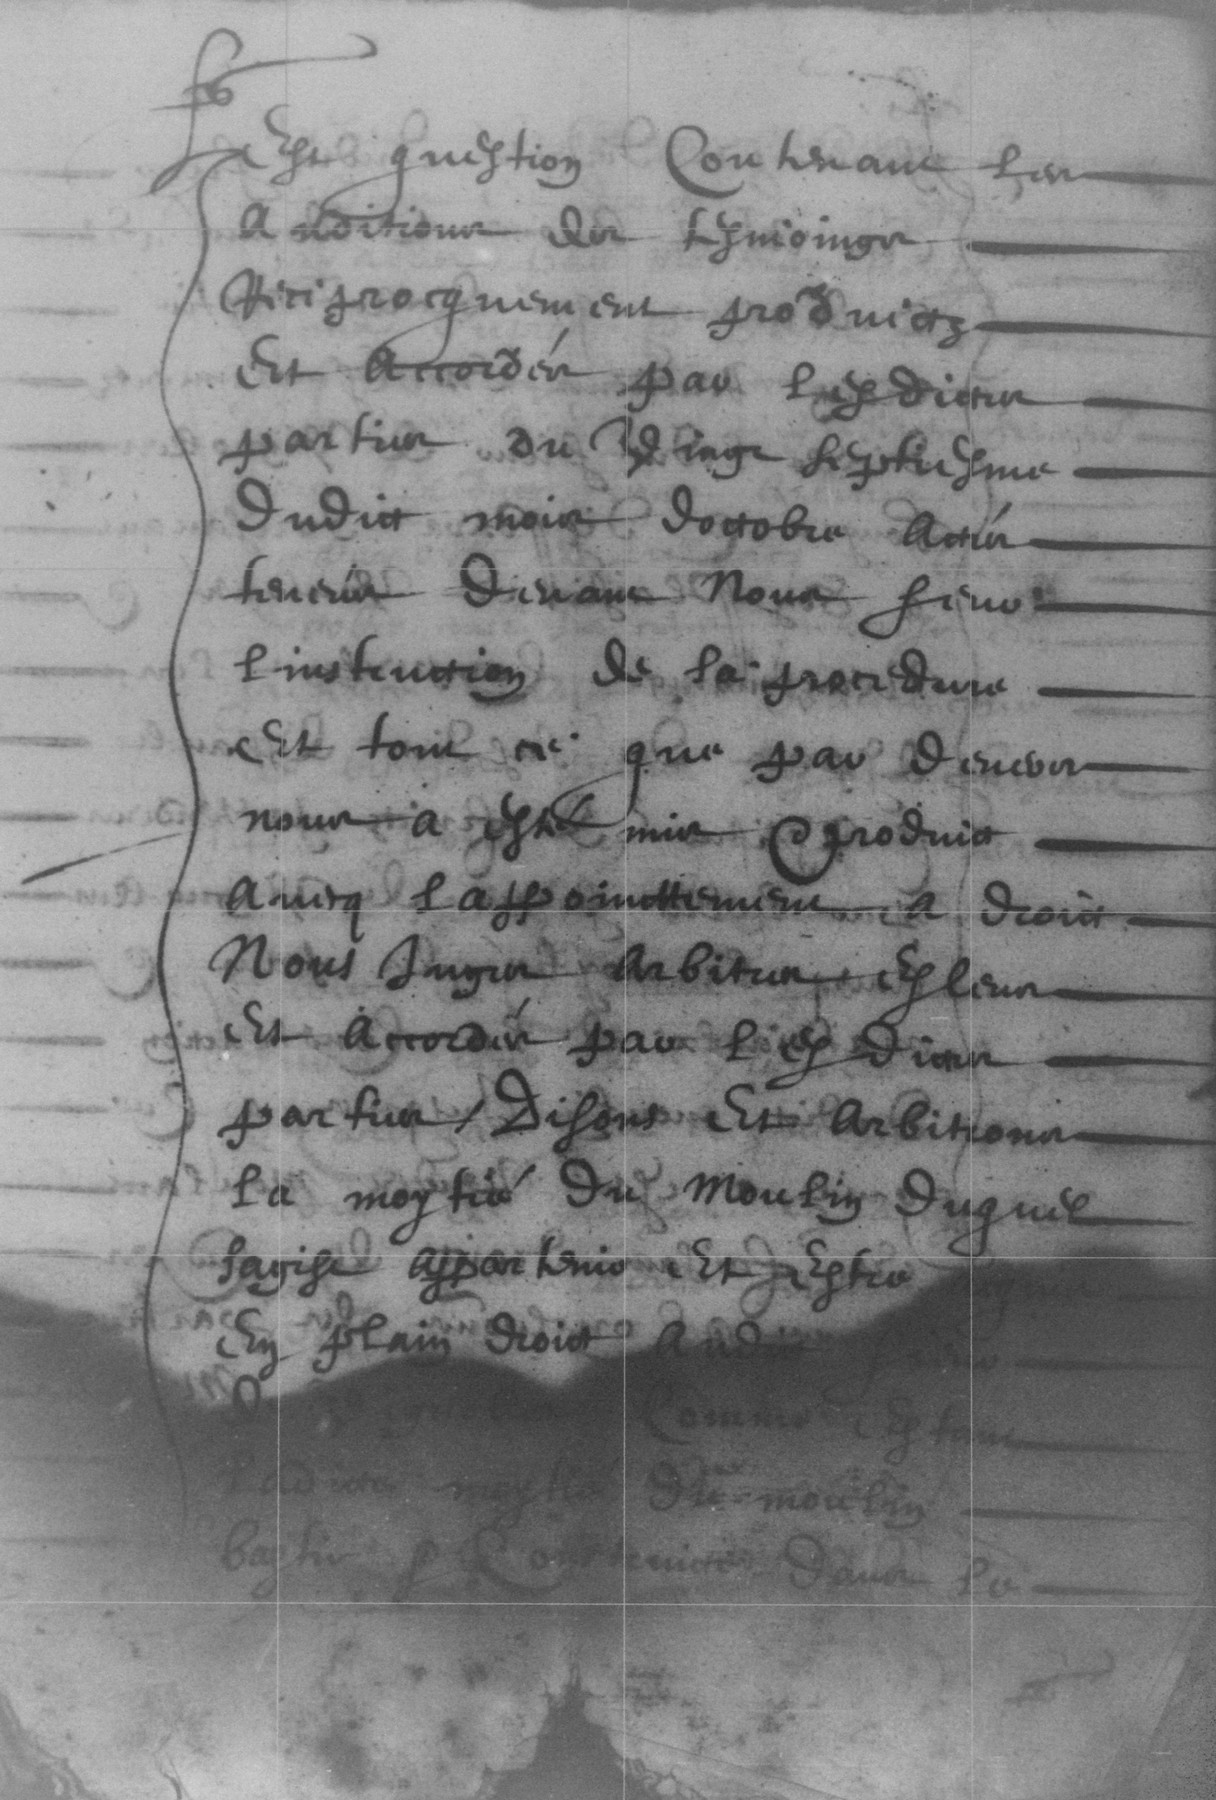 Est question Contenant les
Auditions des tesmoinges
Reciprocquement produictz
Et Accordés par lesdictes
parties du Vingt septiesme
Dudict mois doctobre Actes
teneus Devant Nous sieur
linstruction de la procedure
Et tout ce que par devers
nous a esté mis et produict
Avecq lappoinctement a droict
Nous Juges Arbitres Esleus
Et Accordés par lesdictes
parties / Disons Et Arbitrons
La moytié du Moulin Duquel
sagist appartenir Et Estre
En plain droict Audict
Comme Estant
Ladicte moytié Du moulin
bastie Et Construicte Dans le